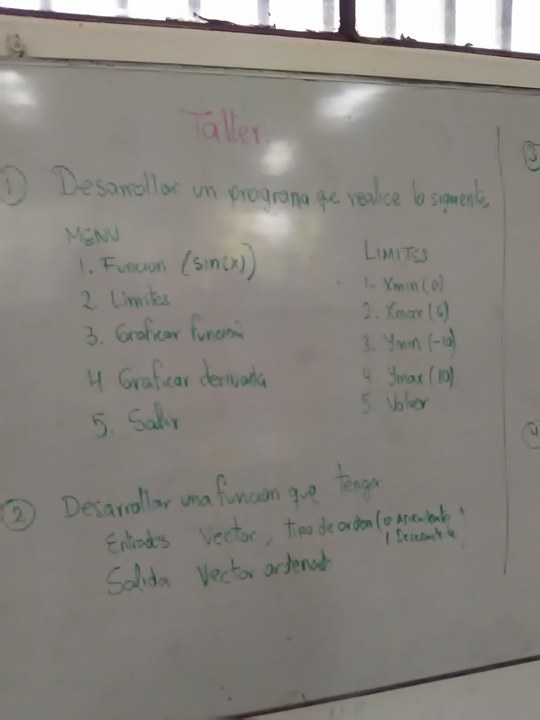 Taller
1 Desarrollar un programa qe realice lo siguiente
MENU
1. Funcion (sin(x))
2. Limites
3. Graficar función
4. Graficar derivada
5. Salir
LIMITES
1. Xmin(0)
2. Xmax(6)
3. Ymin(-10)
4 Ymax(10)
5. Volver
2 Desarrollar una función que tenga
Entradas Vector, tipo de orden (0
Salida Vector ordenado
3
4